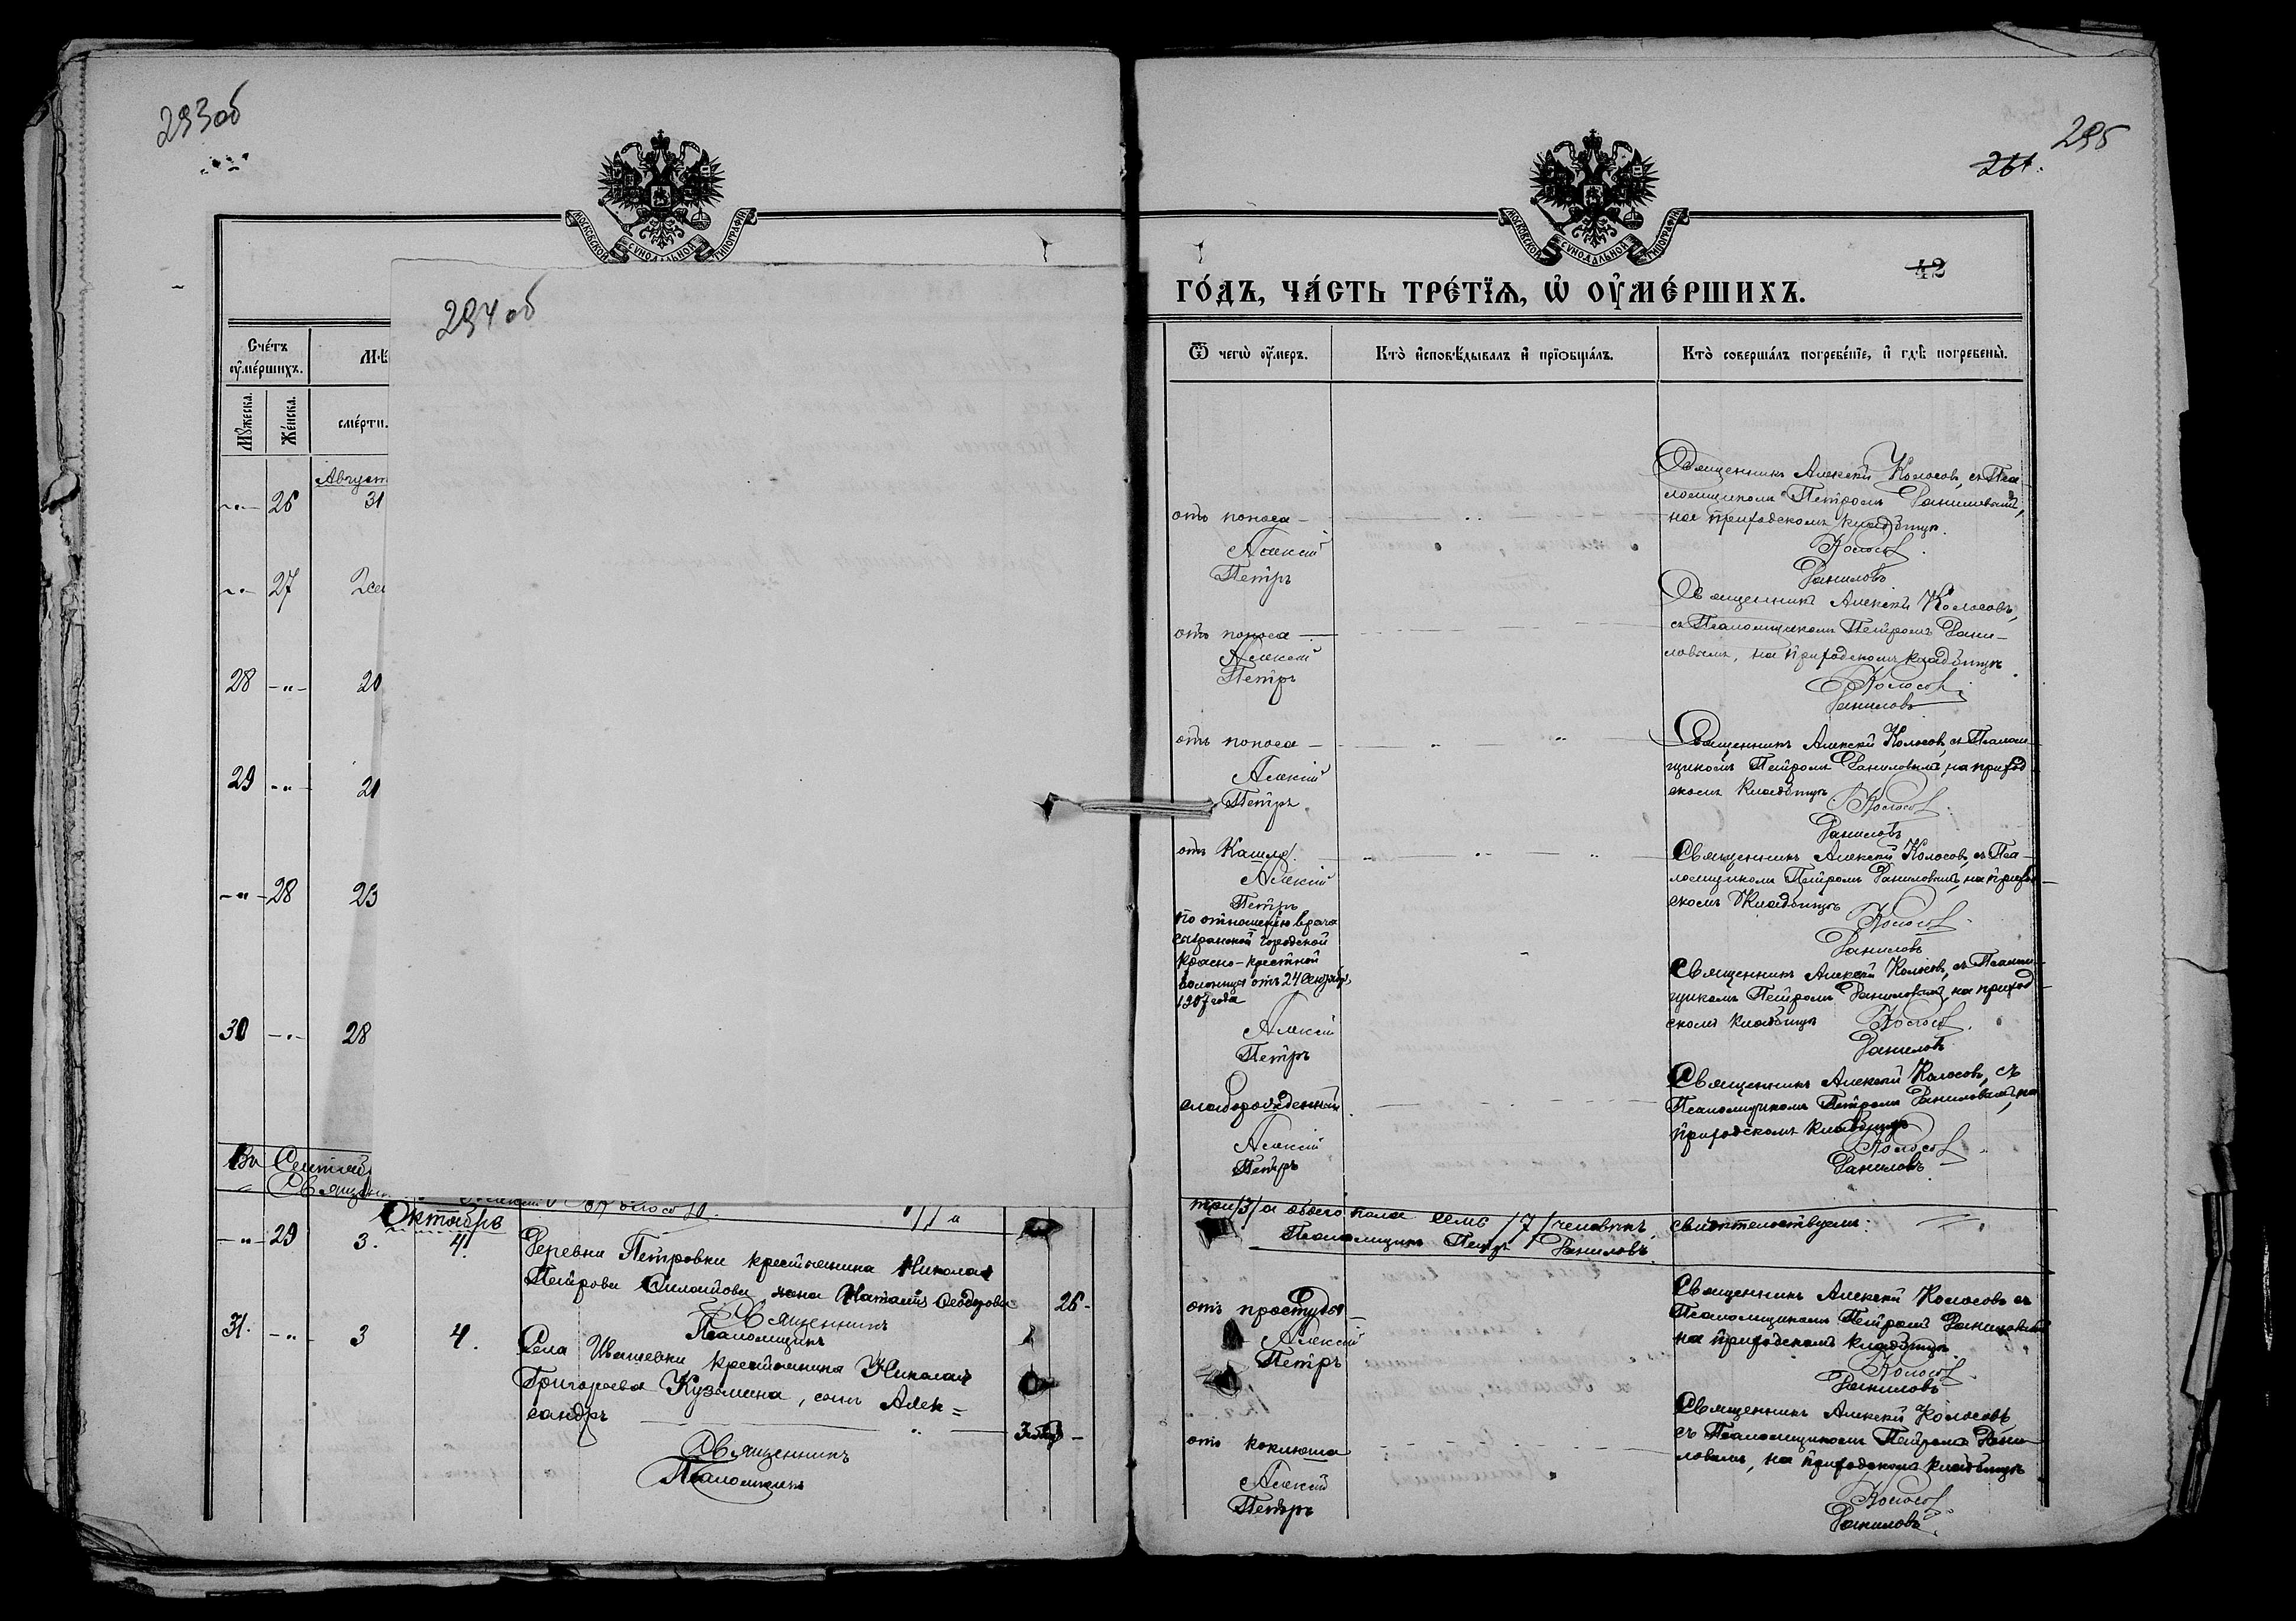 293об
МОСКОВСКОЙ СѴНОДАЛЬНОЙ ТИПОГРАФІИ
294 об
Счéтъ ѹ҆мéршихъ.
Мꙋжеска.
Жéнска.
смéрти.
Август
-"- 26 31
-"- 27
28 -"- 20
29 -"- 21
-"- 28 23
30 -"- 28
Въ Сентяб
Священ
Октябрь
-"- 29 3. 4.
Деревни Петровки крестьянина Николая
Петрова Филатова жена Наталія Ѳеодорова 26-
Священникъ
Псаломщикъ
31. -"- 3 4.
Села Ивашевки, крестьянина Николая
Григорьева Кузьмина, сынъ Алек=
сандръ
Священникъ
Псаломщикъ
261.
295
МОСКОВСКОЙ СѴНОДАЛЬНОЙ ТИПОГРАФІИ
42
ГÓДЪ, ЧÁСТЬ ТРÉТЇѦ, Ѡ҆ ОУ҆МÉРШИХЪ.
Ѿ чегѡ̀ ѹ҆́меръ.
Ктò и҆сповѣ́дывалъ и҆ прїѻбщáлъ.
Ктò совершáлъ погребéнїе, и҆ гдѣ̀ погребены̀.
отъ поноса -
Алексій
Петръ
Священникъ Алексѣй Колосовъ, съ Пса-
ломщикомъ Петромъ Даниловымъ,
на приходскомъ кладбищѣ.
Колосов
Даниловъ
отъ поноса
Алексій
Петръ
Священникъ Алексѣй Колосовъ,
съ Псаломщикомъ Петромъ Дани-
ловымъ, на приходскомъ кладбищѣ
Колосов
Даниловъ
отъ поноса -
Алексій
Петръ
Священникъ Алексѣй Колосовъ, съ Псалом-
щикомъ Петромъ Даниловымъ, на приход-
скомъ кладбищѣ
Колосов
Даниловъ
отъ Кашля.
Алексій
Петръ
Священникъ Алексѣй Колосовъ, съ Пса-
ломщикомъ Петромъ Даниловымъ, на приход-
скомъ Кладбищѣ
Колосов
Даниловъ
по отношенію врача
сызранской городской
красно-крестной
больницы отъ 24 Сентября
1907 года
Алексій
Петръ
Священникъ Алексѣй Колосовъ, съ Псалом-
щикомъ Петромъ Даниловымъ, на приход-
скомъ кладбищѣ
Колосов
Даниловъ
слаборожденный
Алексій
Петръ
Священникъ Алексѣй Колосовъ, съ
Псаломщикомъ Петромъ Даниловымъ, на
приходскомъ кладбищѣ
Колосов
Даниловъ
три /3/ а обоего пола семь /7/ человѣкъ, свидѣтельствуемъ:
Псаломщикъ Петръ Даниловъ.
отъ простуды
Алексій
Петръ
Священникъ Алексѣй Колосовъ съ
Псаломщикомъ Петромъ Даниловымъ
на приходскомъ кладбищѣ
Колосов
Даниловъ
отъ коклюша
Алексій
Петръ
Священникъ Алексѣй Колосовъ
съ Псаломщикомъ Петромъ Дани-
ловымъ, на приходскомъ кладбищѣ
Колосов
Даниловъ